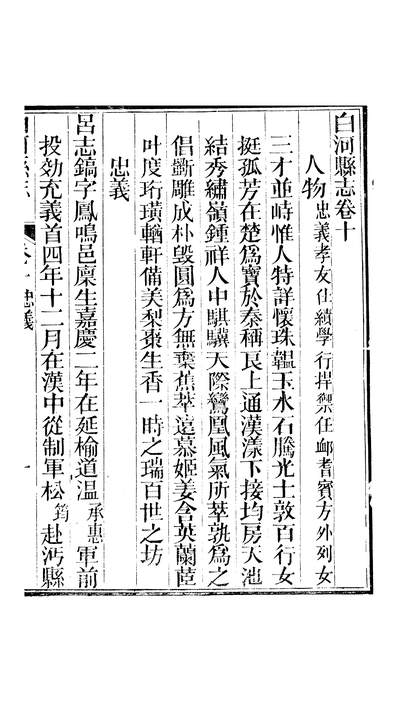 白河縣志卷十
人物忠義孝友仕績學行捍禦任卹耆賓方外列女
三才並峙惟人特詳懷珠韞玉水石騰光士敦百行女
挺孤芳在楚爲寶於秦稱良上通漢漾下接均房天池
結秀繡嶺鍾祥人中騏驥天際鸞凰風氣所萃孰爲之
倡斲雕成朴毀圓爲方無棄蕉萃遠慕姬姜含英蘭茝
叶度珩璜輶軒備美梨棗生香一時之瑞百世之坊
忠義
呂志鎬字鳳鳴邑廩生嘉慶二年在延榆道溫承惠軍前
投効充義首四年十二月在漢中從制軍松筠赴沔縣
白河縣志
卷十忠義
一